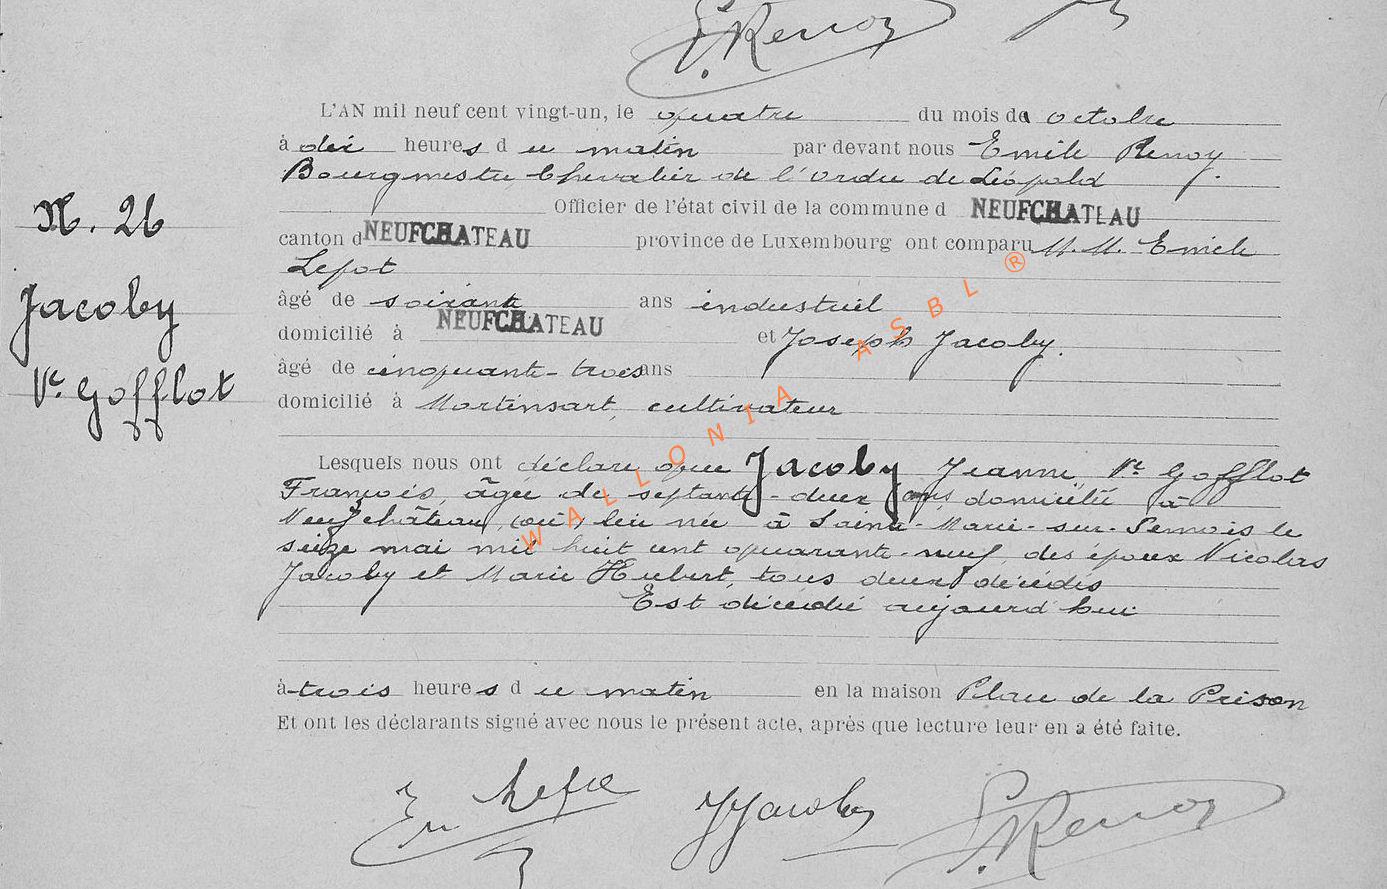 E. Renoy
L'AN mil neuf cent vingt-un, le quatre du mois de octobre
à dix heures du matin par devant nous Emile Renoy
Bourgmestre Chevalier de l'ordre de Léopold
N. 26
Officier de l'état civil de la commune d NEUFCHATEAU
canton d NEUFCHATEAU province de Luxembourg ont comparu M.M. Emile
Lefot
Jacoby
âgé de soixante ans industriel
domicilié à NEUFCHATEAU et Joseph Jacoby.
Ve Gofflot
âgé de cinquante-trois ans
domicilié à Mortinsart, cultivateur
Lesquels nous ont déclaré que Jacoby Jeanne, Ve Gofflot
François, âgée de septante-deux ans domiciliée à
Neufchâteau, lieu née à Sainte-Marie-sur-Semois le
seize mai mil huit cent quarante-neuf, des époux Nicolas
Jacoby et Marie Hubert, tous deux décédés
Est décédée aujourd'hui
à trois heures du matin en la maison Place de la Prison
Et ont les déclarants signé avec nous le présent acte, après que lecture leur en a été faite.
JJacoby E. Renoy
WALLONIA ASBL ®